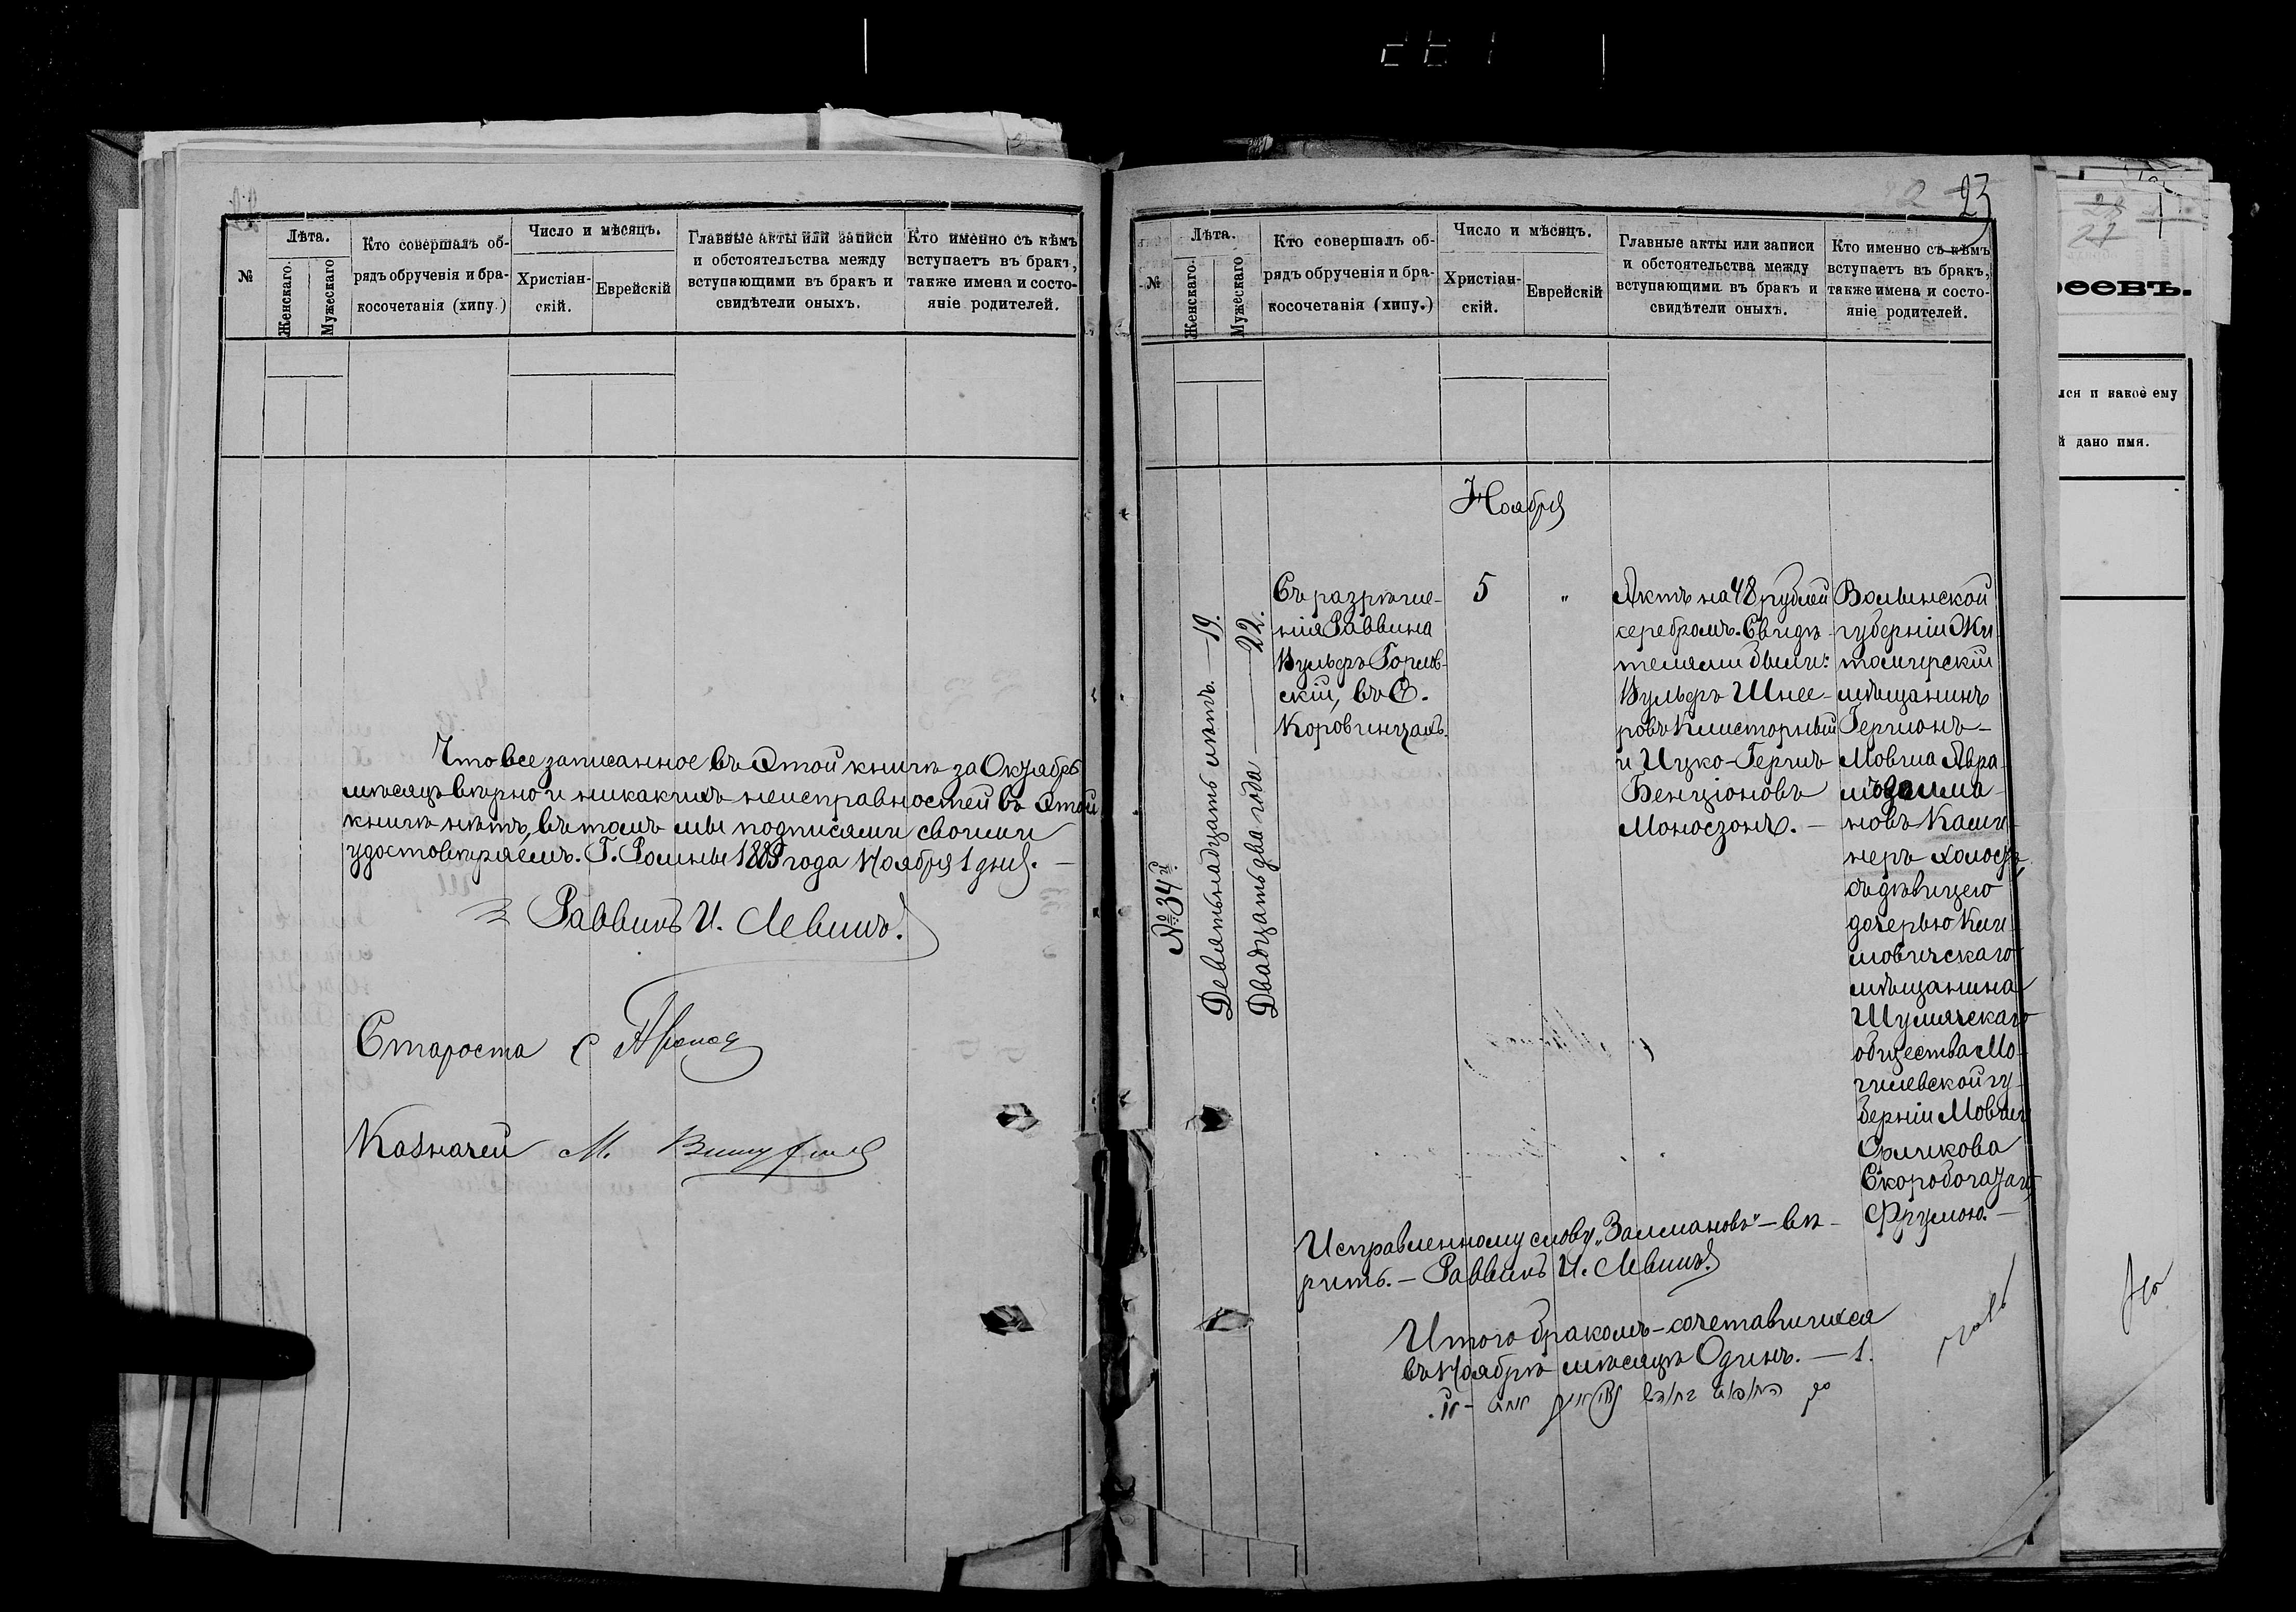 №
Лѣта.
Женскаго.
Мужескаго
Кто совершалъ об-
рядъ обрученія и бра-
косочетанія (хипу.)
Число и мѣсяцъ.
Христіан-
скій.
Еврейскій
Главные акты или записи
и обстоятельства между
вступающими въ бракъ и
свидѣтели оныхъ.
Кто именно съ кѣмъ
вступаетъ въ бракъ,
также имена и состо-
яніе родителей.
Что все записанное въ этой книгѣ за Октябрь
мѣсяцъ вѣрно и никакихъ неисправностей въ этой
книгѣ нѣтъ, въ томъ мы подписями своими
удостовѣряемъ. Г. Ромны 1889 года Ноября 1 дня. —
Раввинъ И. Левинъ.
Староста
Казначей М.
23
№
Лѣта.
Женскаго.
Мужескаго
Кто совершалъ об-
рядъ обрученія и бра-
косочетанія (хипу.)
Число и мѣсяцъ.
Христіан-
скій.
Еврейскій
Главные акты или записи
и обстоятельства между
вступающими въ бракъ и
свидѣтели оныхъ.
Кто именно съ кѣмъ
вступаетъ въ бракъ,
также имена и состо-
яніе родителей.
Ноября
№ 34й.
Девятьнадцать лѣтъ. — 19.
Двадцать два года — 22.
Съ разрѣше-
нія Раввина
Вульфъ Горив-
скій, въ С.
Коровинцахъ.
5
"
Актъ на 48 рублей
серебромъ. Свидѣ-
телями были:
Вульфъ Шнее-
ровъ Клисторный
и Ицко-Гершъ
Бенціоновъ
Моносзонъ. —
Волынской
губерніи Жи-
томирскій
мѣщанинъ
Гершонъ-
Мовша Авра-
мъ Залма-
новъ Камі-
неръ холостъ
съ дѣвицею
дочерью Кли-
мовичскаго
мѣщанина
Шумячскаго
общества Мо-
гилевской гу-
берніи Мовши
Сроликова
Скоробогатаго,
Фрумою. —
Исправленному слову „Залмановъ" — вѣ-
рить. — Раввинъ И. Левинъ.
Итого бракомъ-сочетавшихся
въ Ноябрѣ мѣсяцѣ Одинъ. — 1.
реевъ.
лся и какое ему
й дано имя.